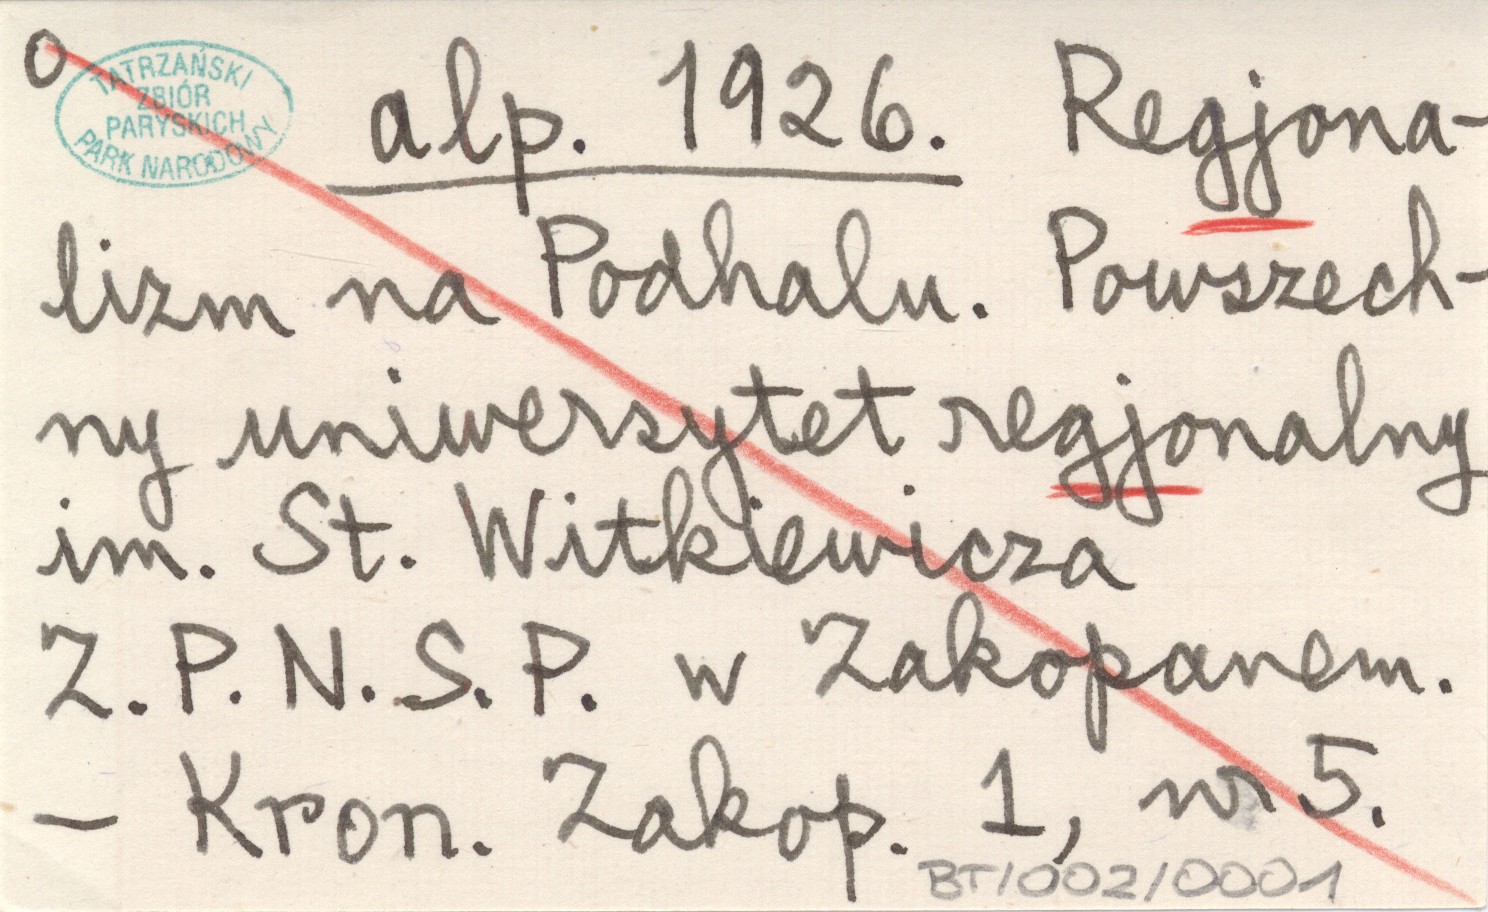 O
TATRZAŃSKI
ZBIÓR
PARYSKICH
PARK NARODOWY
alp. 1926. Regjona-
lizm na Podhalu. Powszech-
ny uniwersytet regjonalny
im. St. Witkiewicza
Z.P.N.S.P. w Zakopanem.
– Kron. Zakop. 1, nr 5.
BT/002/0001